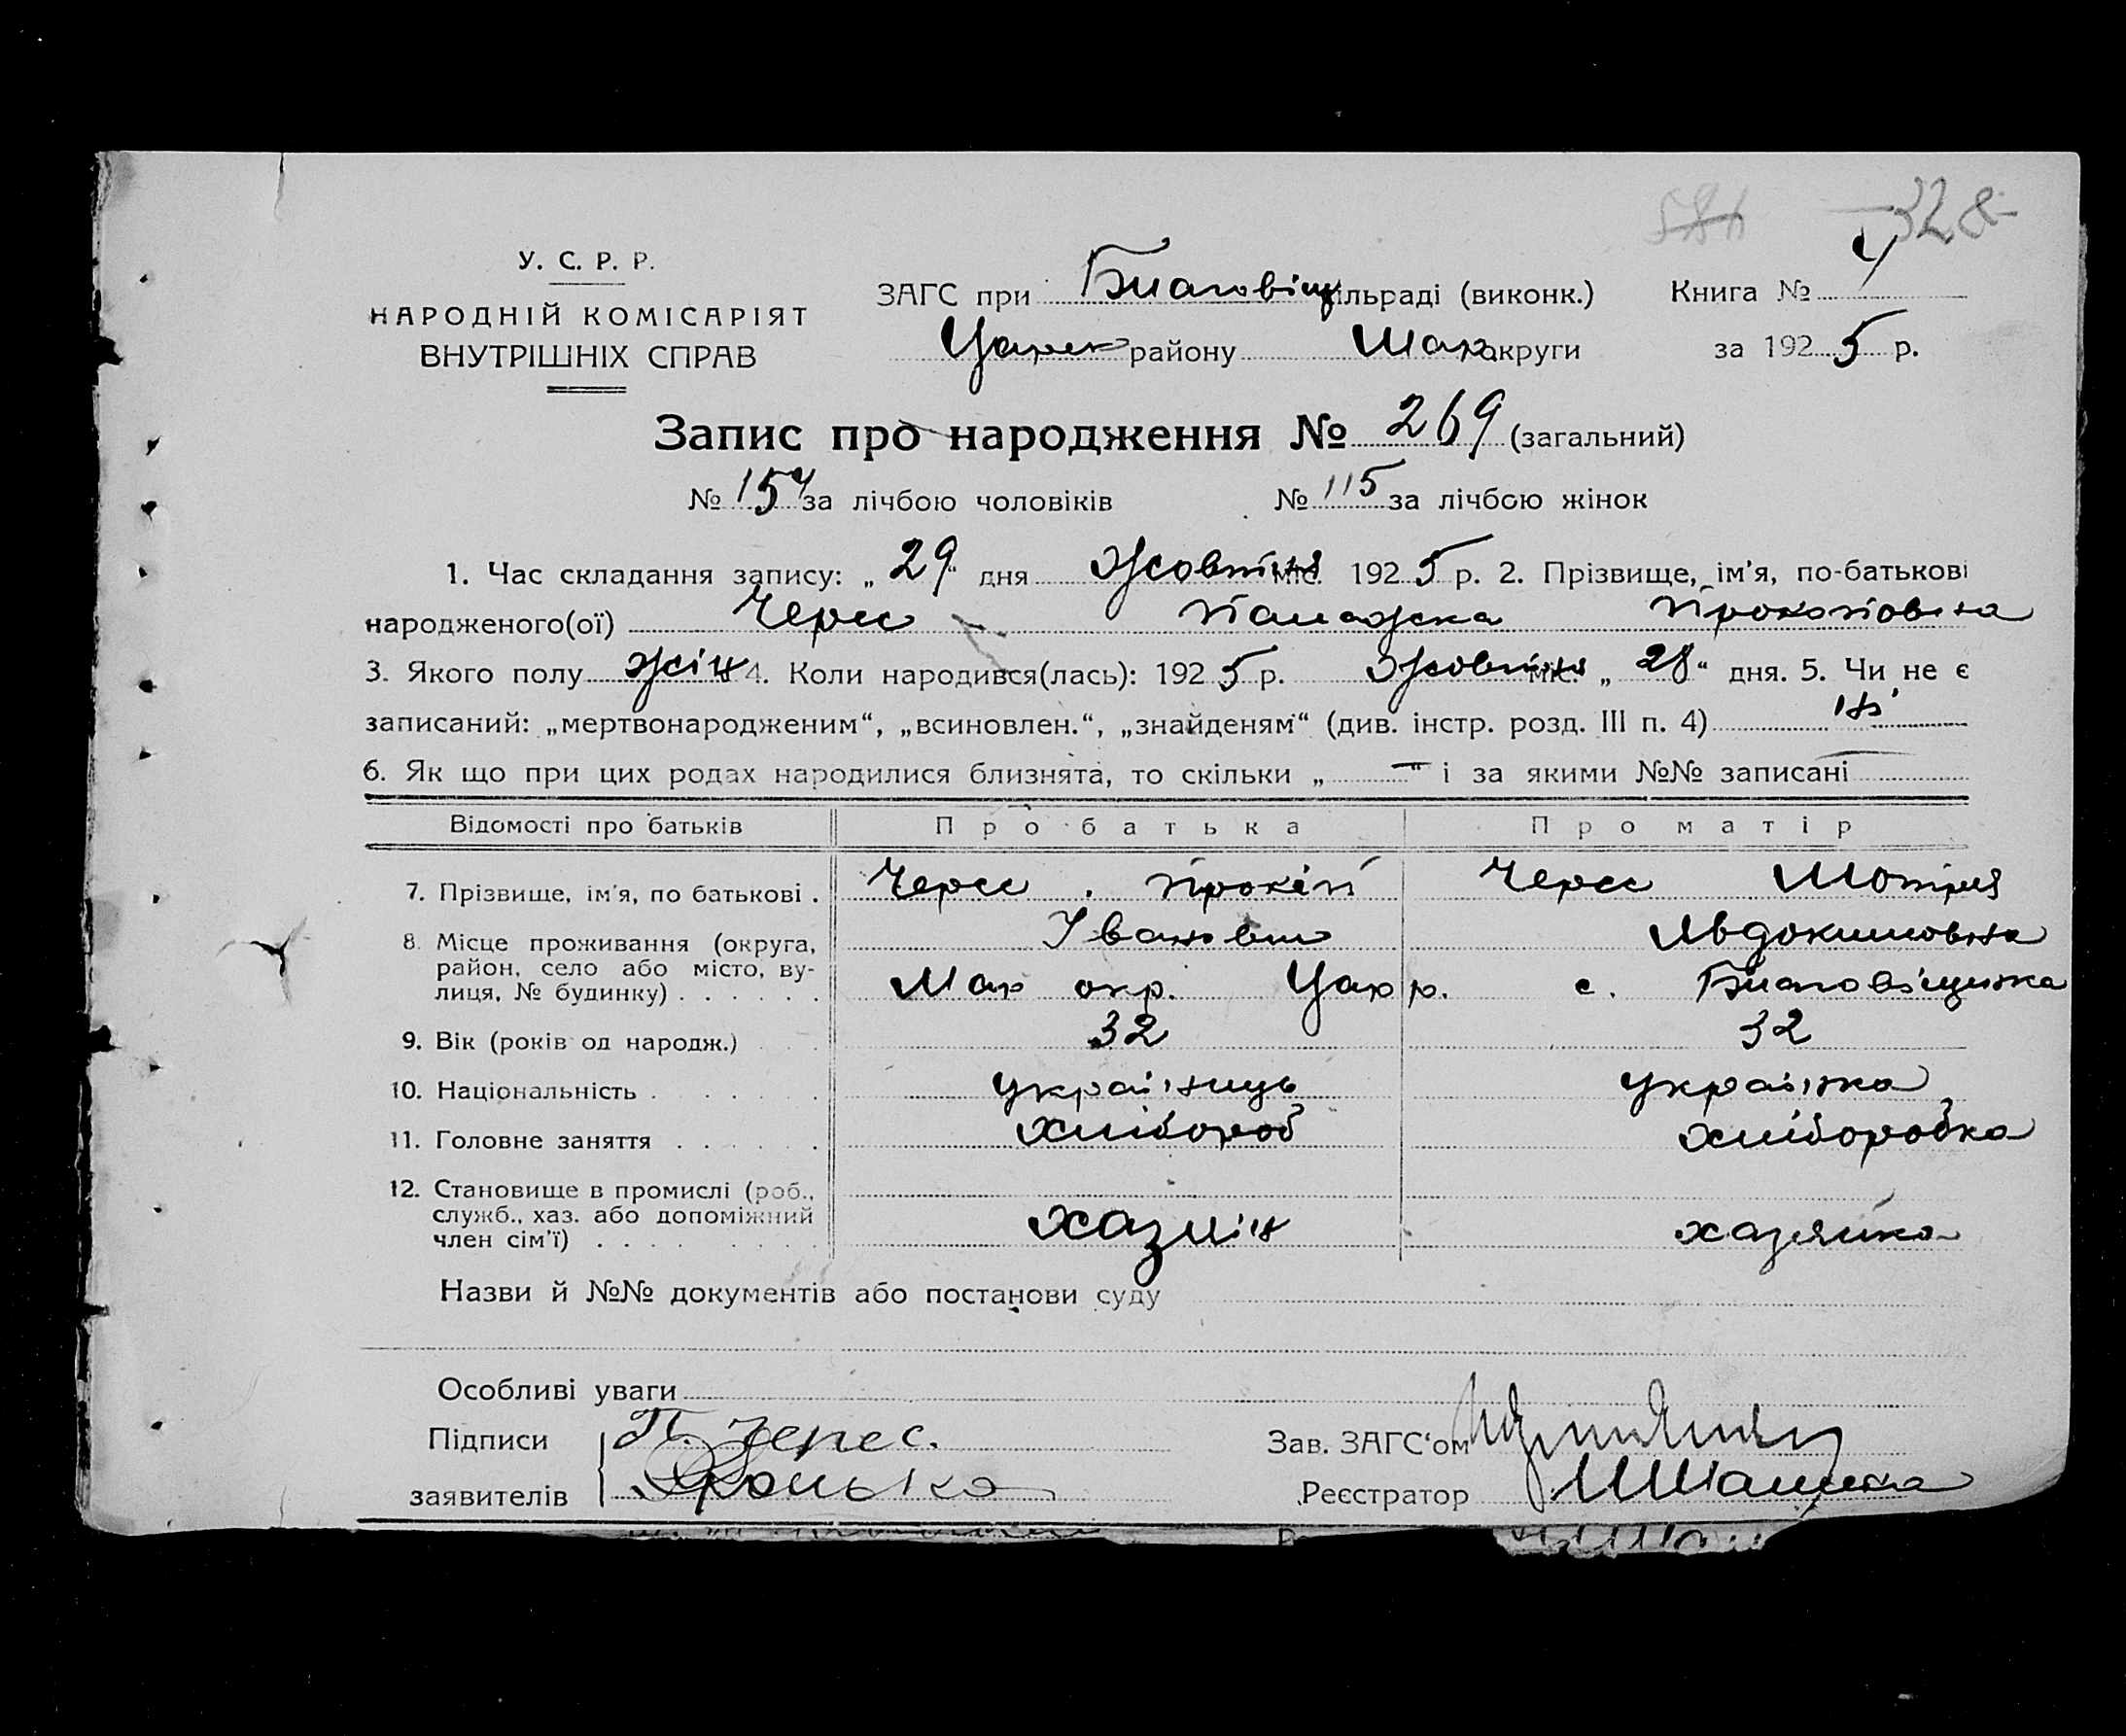 328
У. С. Р. Р.
НАРОДНІЙ КОМІСАРІЯТ
ВНУТРІШНІХ СПРАВ
ЗАГС при Благовіщ ільраді (виконк.) Книга № 4
Царек району Мар округи за 1925 р.
Запис про народження № 269 (загальний)
№ 154 за лічбою чоловіків № 115 за лічбою жінок
1. Час складання запису: „29“ дня Жовтня міс. 1925 р. 2. Прізвище, ім’я, по-батькові
народженого(ої) Черес Палажка Прокоповна
3. Якого полу жін 4. Коли народився(лась): 1925 р. Жовтня міс. „28“ дня. 5. Чи не є
записаний: „мертвонародженим“, „всиновлен.“, „знайденям“ (див. інстр. розд. III п. 4) ні
6. Як що при цих родах народилися близнята, то скільки „—“ і за якими №№ записані —
Відомості про батьків Про батька Про матір
7. Прізвище, ім’я, по батькові . Черес Прокіп Черес Мотря
Іванович Явдокимовна
8. Місце проживання (округа, район, село або місто, вулиця, № будинку) . . . . . . Мар окр. Цар р. с. Благовіщинка
9. Вік (років од народж.) 32 32
10. Національність . . . . . . українець українка
11. Головне заняття . . . . . . хлібороб хліборобка
12. Становище в промислі (роб., служб., хаз. або допоміжний член сім’ї) . . . . хазяін хазяйка
Назви й №№ документів або постанови суду
Особливі уваги
Підписи П. Черес. Зав. ЗАГС‘ом
заявителів Реєстратор